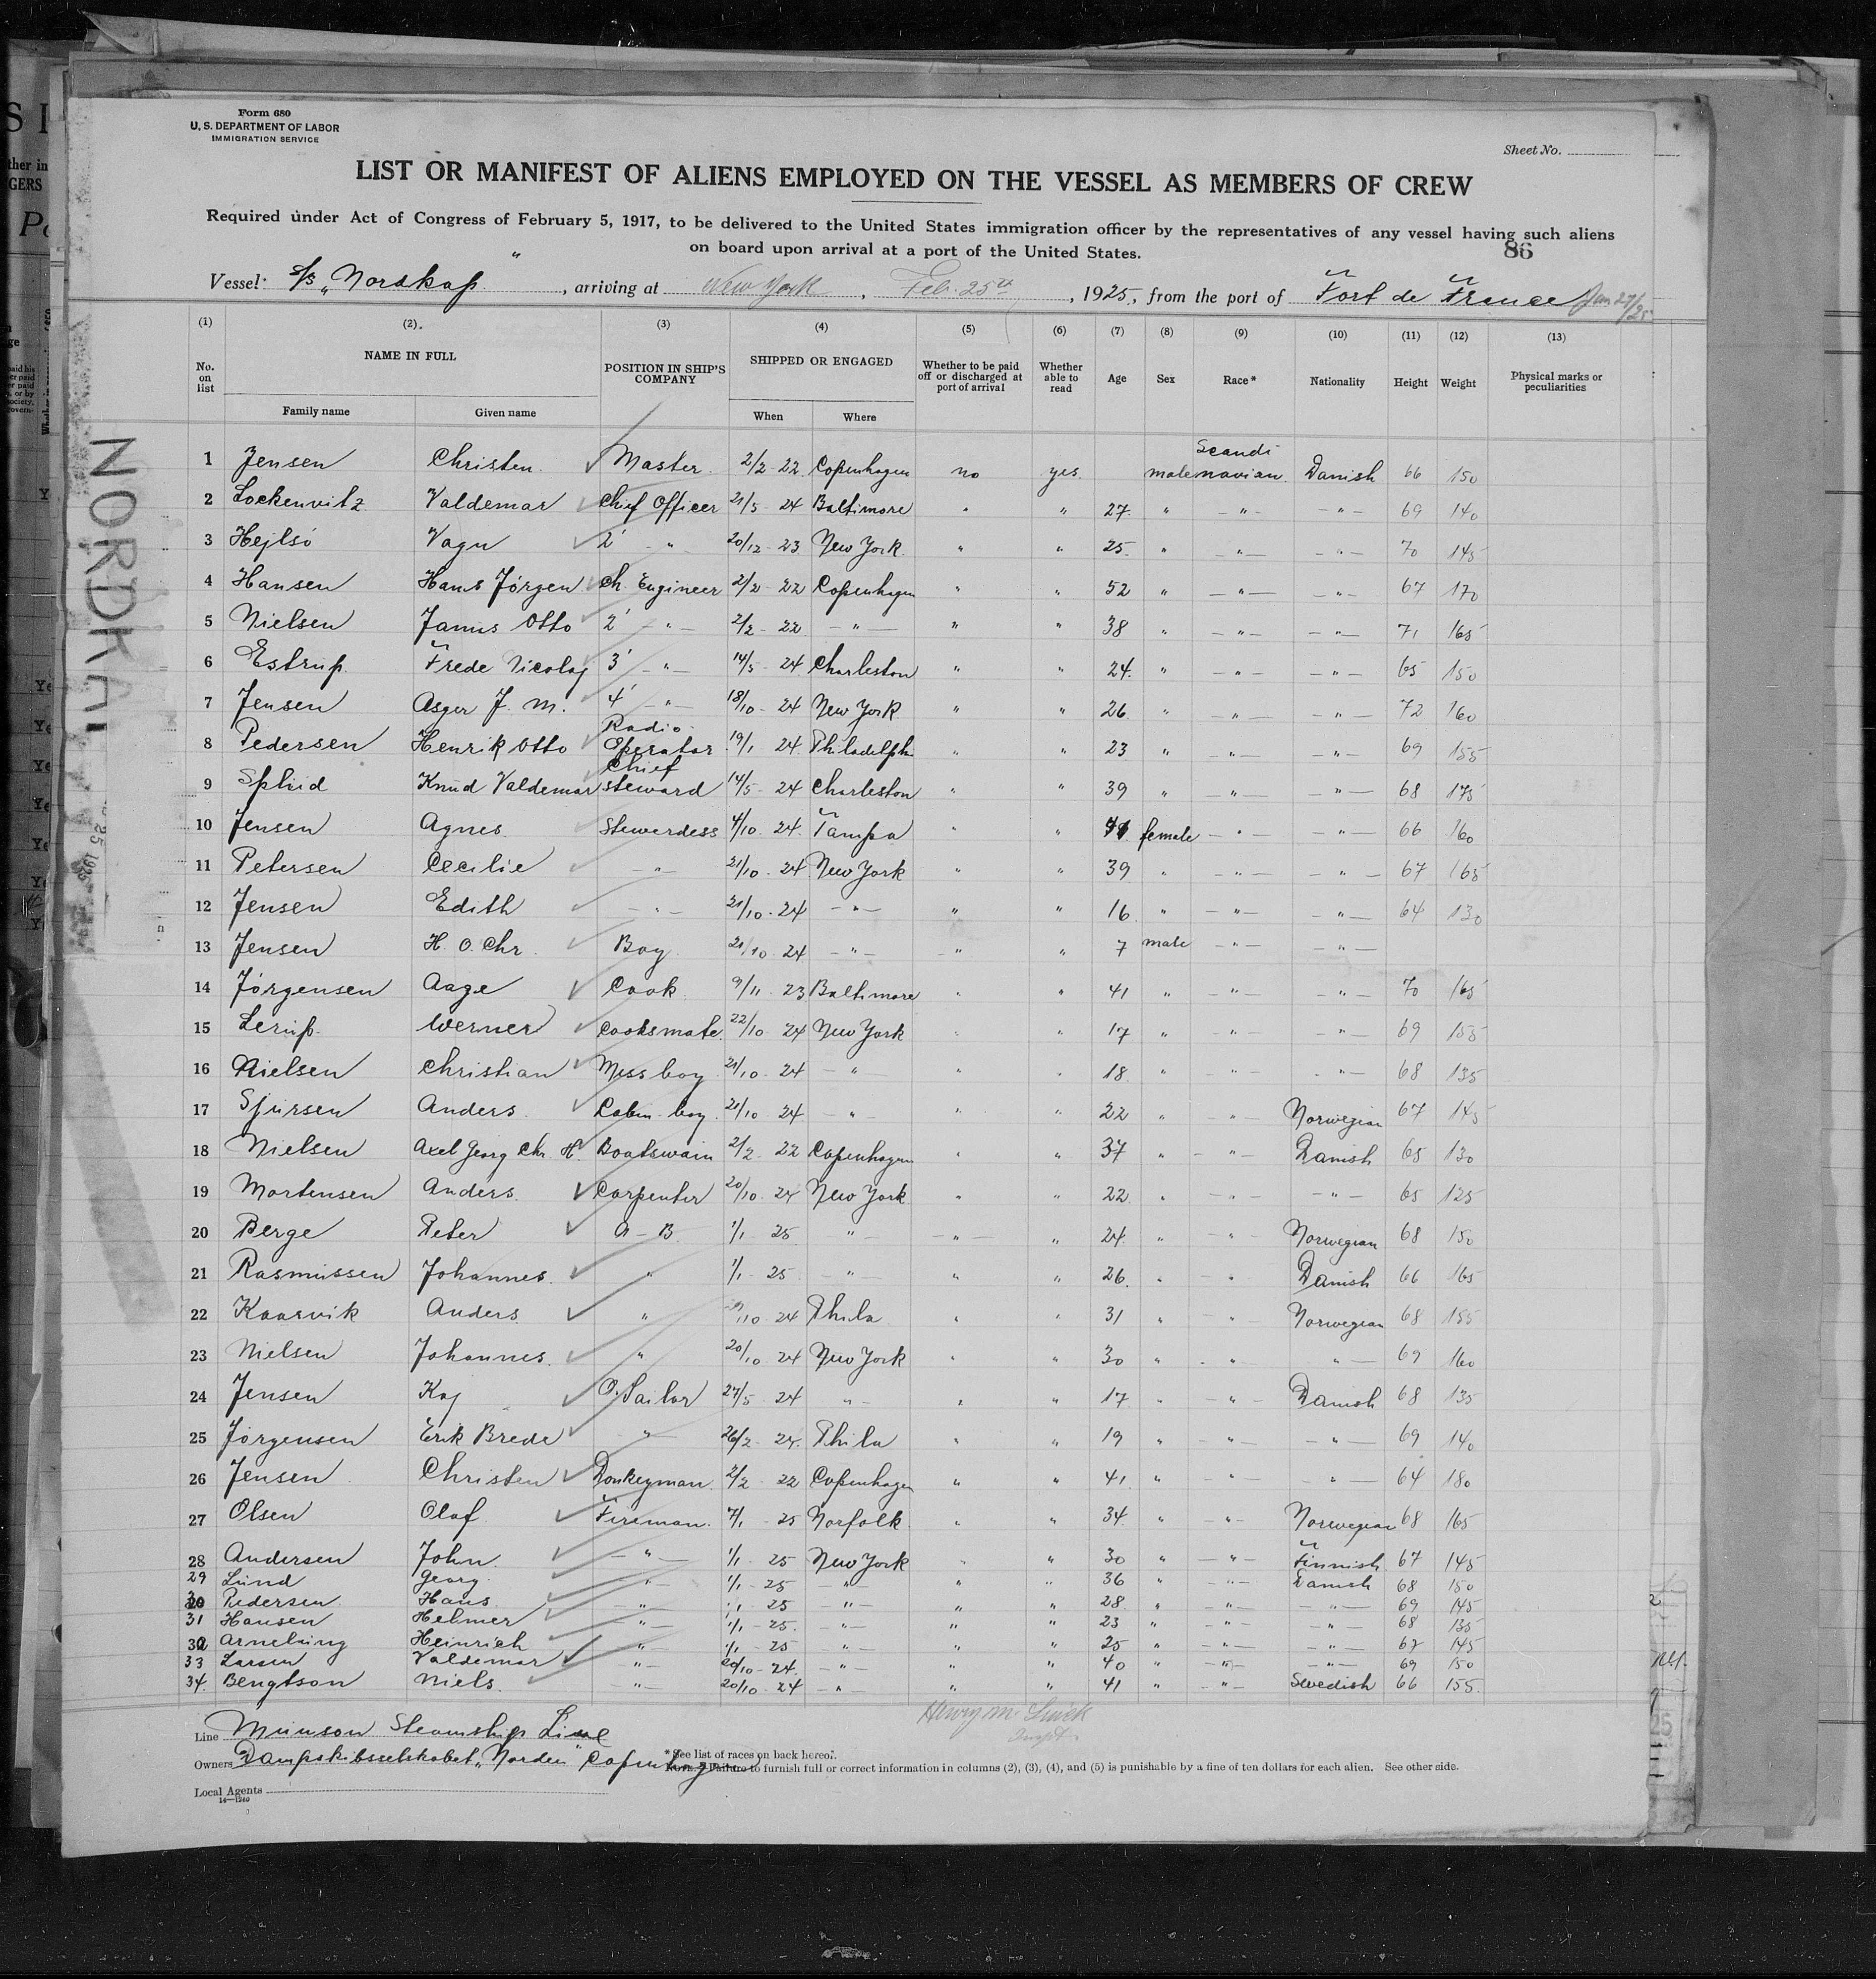 Form 680
U. S. DEPARTMENT OF LABOR
IMMIGRATION SERVICE
Sheet No.
LIST OR MANIFEST OF ALIENS EMPLOYED ON THE VESSEL AS MEMBERS OF CREW
Required under Act of Congress of February 5, 1917, to be delivered to the United States immigration officer by the representatives of any vessel having such aliens
on board upon arrival at a port of the United States.
86
Vessel: S/S „Nordkap", arriving at New York, Feb. 25th, 1925, from the port of Fort de France Jan 27/25
(1) (2) (3) (4) (5) (6) (7) (8) (9) (10) (11) (12) (13)
No. on list NAME IN FULL POSITION IN SHIP'S COMPANY SHIPPED OR ENGAGED Whether to be paid off or discharged at port of arrival Whether able to read Age Sex Race* Nationality Height Weight Physical marks or peculiarities
Family name Given name When Where
1 Jensen Christen Master 2/2 - 22 Copenhagen no yes male Scandinavian Danish 66 150
2 Lockenvitz Valdemar Chief Officer 21/5 - 24 Baltimore " " 27 " " " 69 140
3 Hejlsö Vagn 2' " 20/12 - 23 New York " " 25 " " " 70 145
4 Hansen Hans Jörgen Ch. Engineer 2/2 - 22 Copenhagen " " 52 " " " 67 170
5 Nielsen Janus Otto 2' " 2/2 - 22 " " " 38 " " " 71 165
6 Estrup Frede Nicolaj 3' " 14/5 - 24 Charleston " " 24 " " " 65 150
7 Jensen Asger J. M. 4' " 18/10 - 24 New York " " 26 " " " 72 160
8 Pedersen Henrik Otto Radio Operator 19/1 24 Philadelph " " 23 " " " 69 155
9 Sphid Knud Valdemar Chief steward 14/5 - 24 Charleston " " 39 " " " 68 175
10 Jensen Agnes Stewerdess 4/10 - 24 Tampa " " female " " 66 160
11 Petersen Cecilie " 21/10 - 24 New York " " 39 " " " 67 165
12 Jensen Edith " 21/10 - 24 " " " 16 " " " 64 130
13 Jensen H. O. Chr. Boy 21/10 24 " " " 7 male " "
14 Jörgensen Aage Cook 9/11 - 23 Baltimore " " 41 " " " 70 165
15 Lerup Werner Cooksmate 22/10 24 New York " " 17 " " " 69 155
16 Nielsen Christian Mess boy 21/10 - 24 " " " 18 " " " 68 135
17 Sjursen Anders Cabin boy 21/10 24 " " " 22 " " Norwegian 67 145
18 Nielsen Axel Georg Chr. H. Boatswain 2/2 - 22 Copenhagen " " 37 " " Danish 65 130
19 Mortensen Anders Carpenter 20/10 - 24 New York " " 22 " " " 65 125
20 Berge Peter A - B 1/1 25 " " " 24 " " Norwegian 68 150
21 Rasmussen Johannes " 1/1 - 25 " " " 26 " " Danish 66 165
22 Kaarvik Anders " /10 24 Phila " " 31 " " Norwegian 68 155
23 Nielsen Johannes " 20/10 24 New York " " 30 " " " 69 160
24 Jensen Kaj O. Sailor 27/5 24 " " " 17 " " Danish 68 135
25 Jörgensen Erik Brede " 26/2 - 24 Phila " " 19 " " " 69 140
26 Jensen Christen Donkeyman 2/2 - 22 Copenhagen " " 41 " " " 64 180
27 Olsen Olaf Fireman 7/1 - 25 Norfolk " " 34 " " Norwegian 68 165
28 Andersen John " 1/1 - 25 New York " " 30 " " Finnish 67 145
29 Lund Georg " 1/1 - 25 " " " 36 " " Danish 68 150
30 Pedersen Hans " 1/1 25 " " " 28 " " " 69 145
31 Hansen Helmer " 1/1 - 25 " " " 23 " " " 68 135
32 Arnelung Heinrich " 1/1 - 25 " " " 25 " " " 67 145
33 Larsen Valdemar " 20/10 - 24 " " " 40 " " " 69 150
34. Bengtson Niels " 20/10 - 24 " " " 41 " " Swedish 66 155
Line Munson Steamship Line
Henry M.
Inspt
Owners Dampskibsselskabet „Norden" Copenhagen
* See list of races on back hereof.
Failure to furnish full or correct information in columns (2), (3), (4), and (5) is punishable by a fine of ten dollars for each alien. See other side.
Local Agents
14—1240
NORDKAP
25 1925